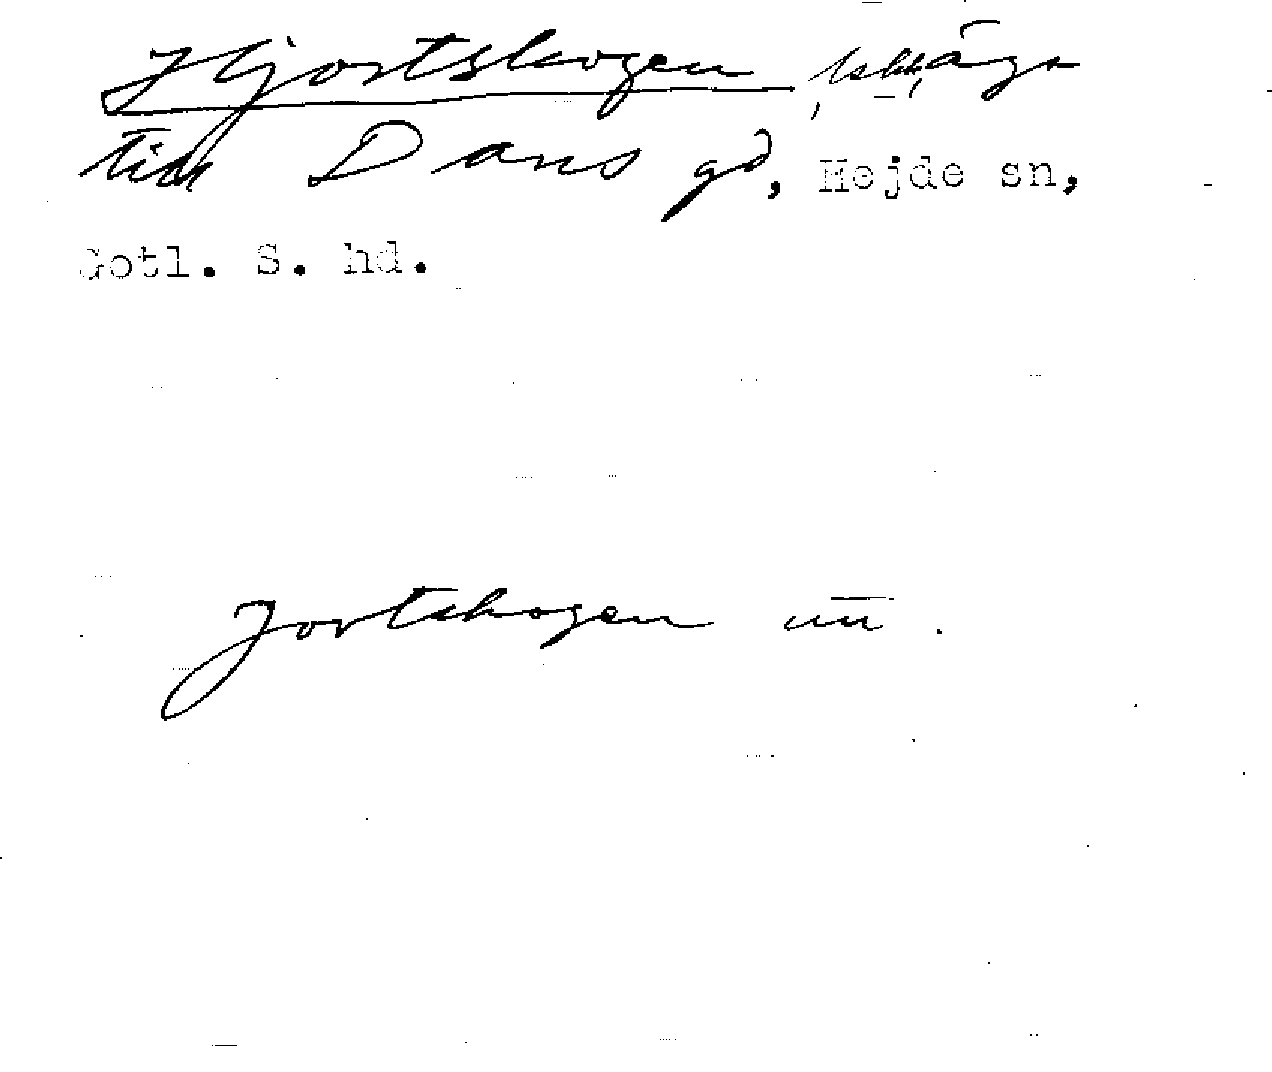 Hjortskogen, äga
till Dans gd, Hejde sn,
Gotl. S. hd.
Jortskogen